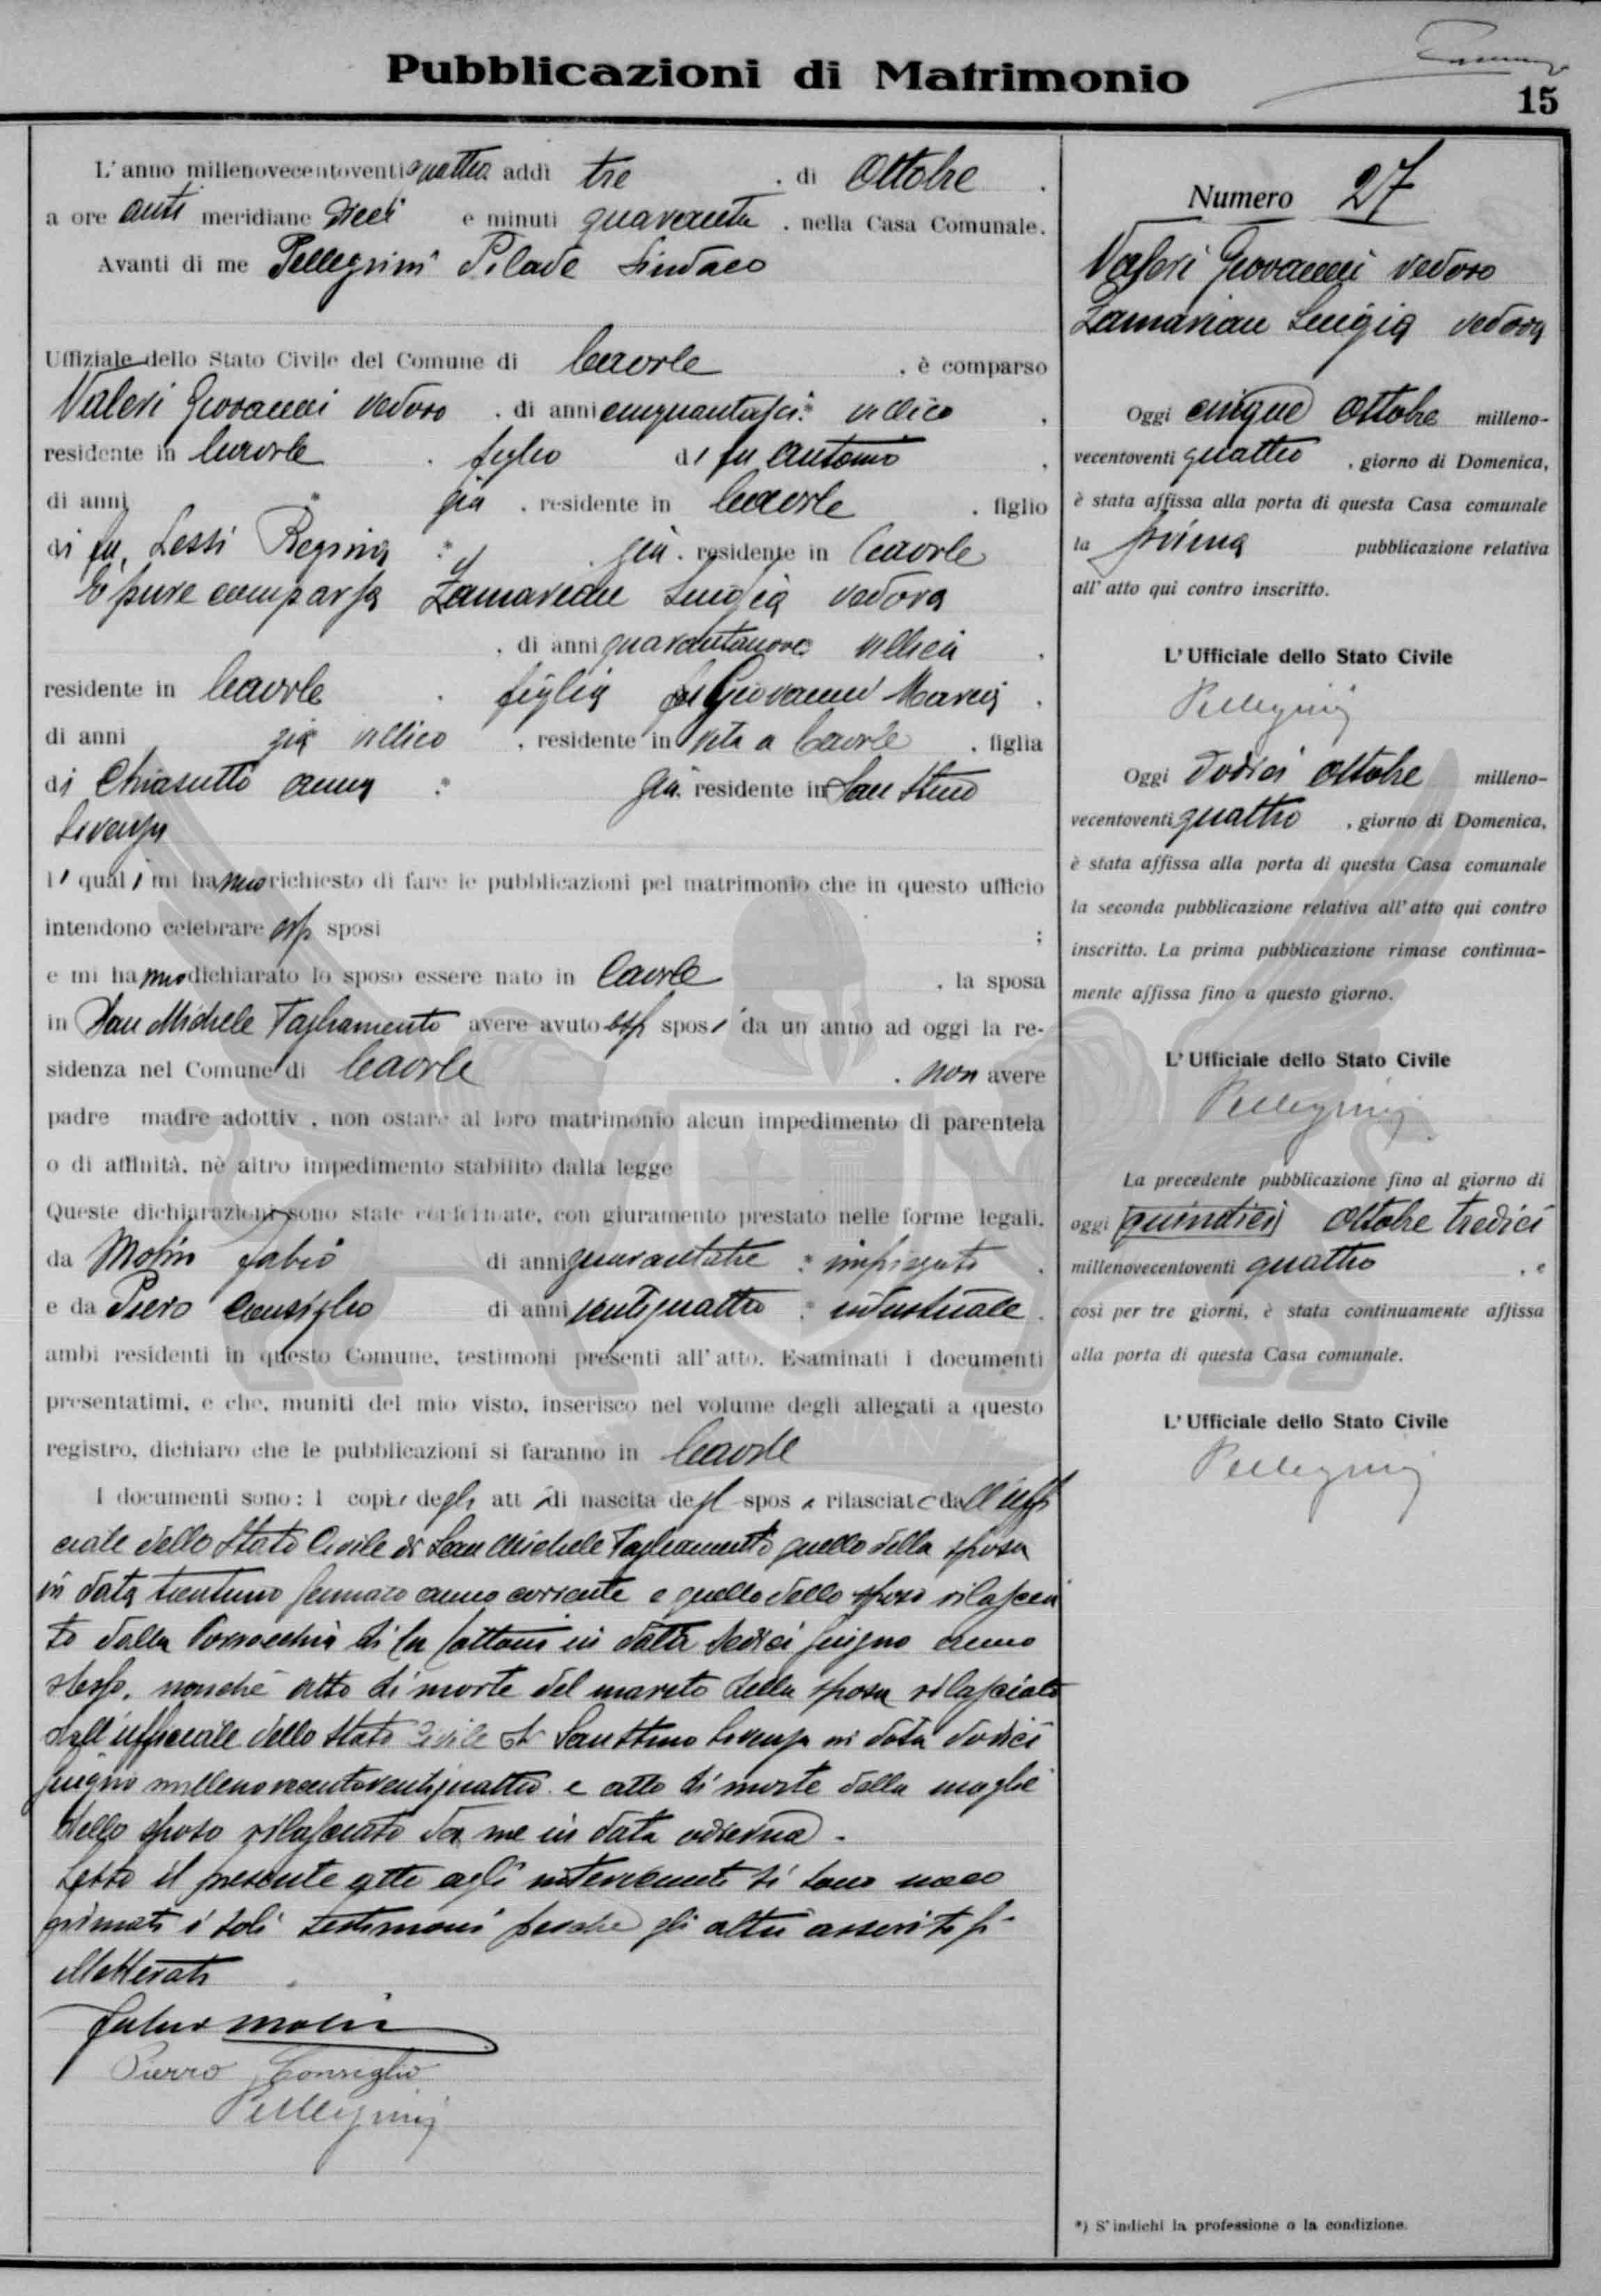 Pubblicazioni di Matrimonio
15
L'anno millenovecentoventiquattro addì tre di Ottobre
a ore anti meridiane dieci e minuti quaranta, nella Casa Comunale.
Avanti di me Pellegrini Pilade Sindaco
Uffiziale dello Stato Civile del Comune di Caorle, è comparso
Valeri Giovanni vedovo, di anni cinquantasei villico
residente in Caorle, figlio di fu Antonio,
di anni già, residente in Caorle, figlio
di fu Lessi Regina già residente in Caorle
È pure comparsa Zamarian Luigia vedova
, di anni quarantanove villica,
residente in Caorle, figlia fu Giovanni Maria,
di anni già villico, residente in vita a Caorle, figlia
di Chiasutto Anna già residente in San Stino
Livenza
i quali mi hanno richiesto di fare le pubblicazioni pel matrimonio che in questo ufficio
intendono celebrare essi sposi ;
e mi hanno dichiarato lo sposo essere nato in Caorle, la sposa
in San Michele Tagliamento avere avuto essi sposi da un anno ad oggi la re-
sidenza nel Comune di Caorle, non avere
padre madre adottiv, non ostare al loro matrimonio alcun impedimento di parentela
o di affinità, nè altro impedimento stabilito dalla legge
Queste dichiarazioni sono state confermate, con giuramento prestato nelle forme legali,
da Molin Fabio di anni quarantatre impiegato,
e da Piero Consiglio di anni ventiquattro industriale,
ambi residenti in questo Comune, testimoni presenti all'atto. Esaminati i documenti
presentatimi, e che, muniti del mio visto, inserisco nel volume degli allegati a questo
registro, dichiaro che le pubblicazioni si faranno in Caorle
I documenti sono: 1 copie degli atti di nascita degl sposi rilasciate dall'uffi
ciale dello Stato Civile di San Michele Tagliamento quello della sposa
in data trentuno Gennaio anno corrente e quello dello sposo rilascia
to dalla Parrocchia di in data sedici Giugno anno
stesso, nonchè atto di morte del marito della sposa rilasciato
dall'ufficiale dello Stato Civile di San Stino Livenza in data dodici
Giugno millenovecentoventiquattro e atto di morte della moglie
dello sposo rilasciato da me in data odierna.
Letto il presente atto agli intervenuti si sono meco
firmati i soli testimoni perchè gli altri asseritisi
illetterati
Fabio Molin
Pierro Consiglio
Pellegrini
Numero 27
Valeri Giovanni vedovo
Zamarian Luigia vedova
Oggi cinque Ottobre milleno-
vecentoventi quattro, giorno di Domenica,
è stata affissa alla porta di questa Casa comunale
la prima pubblicazione relativa
all'atto qui contro inscritto.
L'Ufficiale dello Stato Civile
Pellegrini
Oggi dodici Ottobre milleno-
vecentoventi quattro, giorno di Domenica,
è stata affissa alla porta di questa Casa comunale
la seconda pubblicazione relativa all'atto qui contro
inscritto. La prima pubblicazione rimase continua-
mente affissa fino a questo giorno.
L'Ufficiale dello Stato Civile
Pellegrini
La precedente pubblicazione fino al giorno di
oggi quindici Ottobre tredici
millenovecentoventi quattro, e
così per tre giorni, è stata continuamente affissa
alla porta di questa Casa comunale.
L'Ufficiale dello Stato Civile
Pellegrini
*) S'indichi la professione o la condizione.